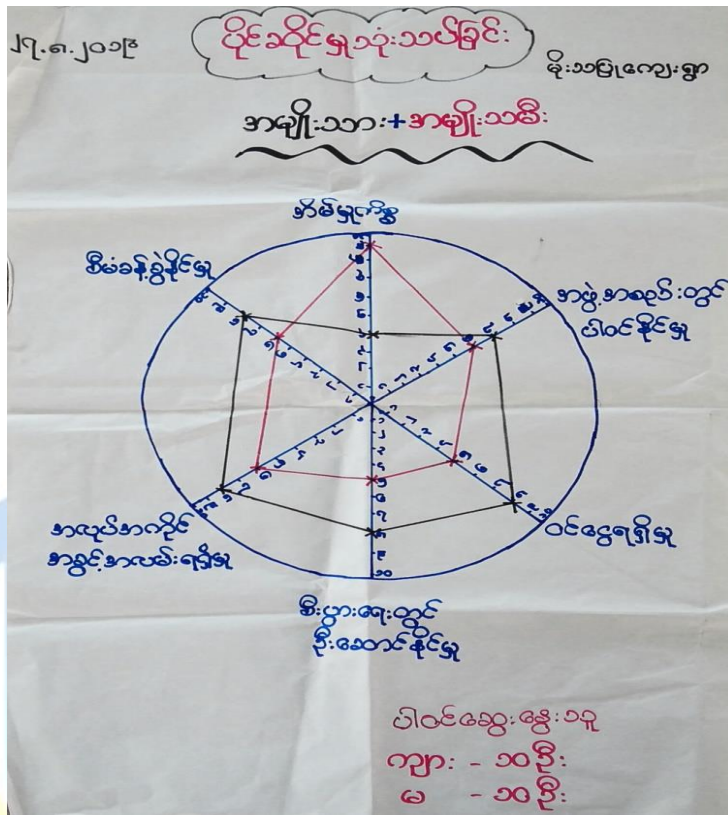 ၂၇.၈.၂၀၁၉
ပိုင်ဆိုင်မှုသုံးသပ်ခြင်း
မိုးသပြုကျေးရွာ
အမျိုးသား+အမျိုးသမီး
အိမ်မှုကိစ္စ
စီမံခန့်ခွဲနိုင်မှု
အဖွဲ့အစည်းတွင်
ပါဝင်နိုင်မှု
ဝင်ငွေရရှိမှု
အလုပ်အကိုင်
အခွင့်အလမ်းရရှိမှု
စီးပွားရေးတွင်
ဦးဆောင်နိုင်မှု
ပါဝင်ဆွေးနွေးသူ
ကျား - ၁၀ဦး
မ - ၁၀ဦး